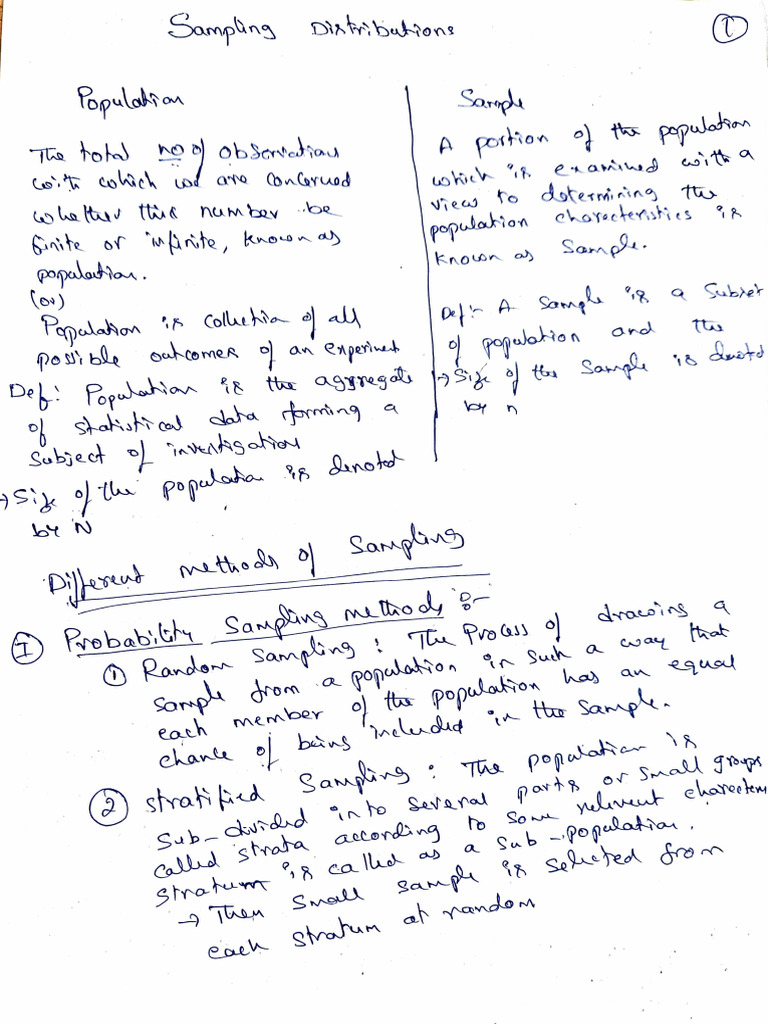 Sampling Distributions
①
Population
The total no of observations
with which we are concerned
whether this number be
finite or infinite, known as
population.
(or)
Population is collection of all
possible outcomes of an experiment
Def: Population is the aggregate
of statistical data forming a
Subject of investigation
→ Size of the population is denoted
by N
Sample
A portion of the population
which is examined with a
view to determining the
population characteristics is
known as Sample.
Def:- A Sample is a Subset
of population and the
→ Size of the Sample is denoted
by n
Different methods of Sampling
Ⓘ Probability Sampling methods :-
① Random Sampling : The Process of drawing a
sample from a population in such a way that
each member of the population has an equal
chance of being included in the Sample.
② Stratified Sampling : The population is
Sub-divided into several parts or small groups
called strata according to some relevent
Stratum is called as a sub-population.
→ Then Small sample is selected from
each stratum at random